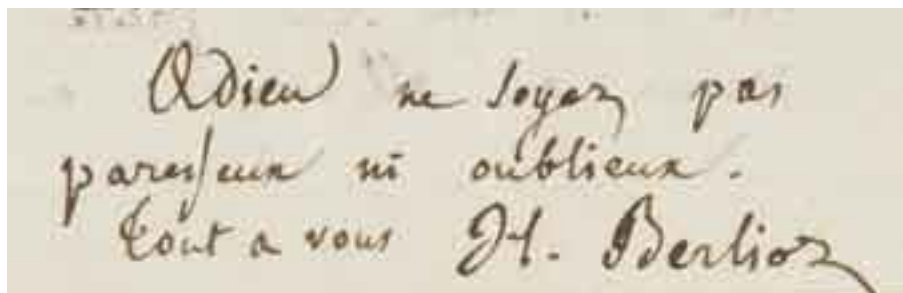 Adieu ne soyez pas
paresseux ni oublieux.
tout a vous H. Berlioz